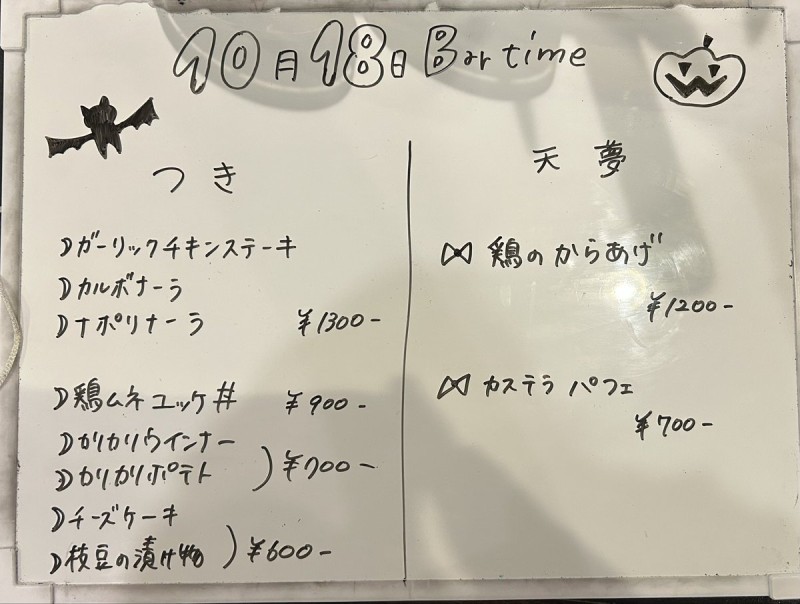 10月18日 Bar time
つき
ガーリックチキンステーキ
カルボナーラ
ナポリナーラ ¥1300-
鶏ムネユッケ丼 ¥900-
カリカリウインナー
カリカリポテト )¥700-
チーズケーキ
枝豆の漬け物 )¥600-
天夢
鶏のからあげ
¥1200-
カステラパフェ
¥700-